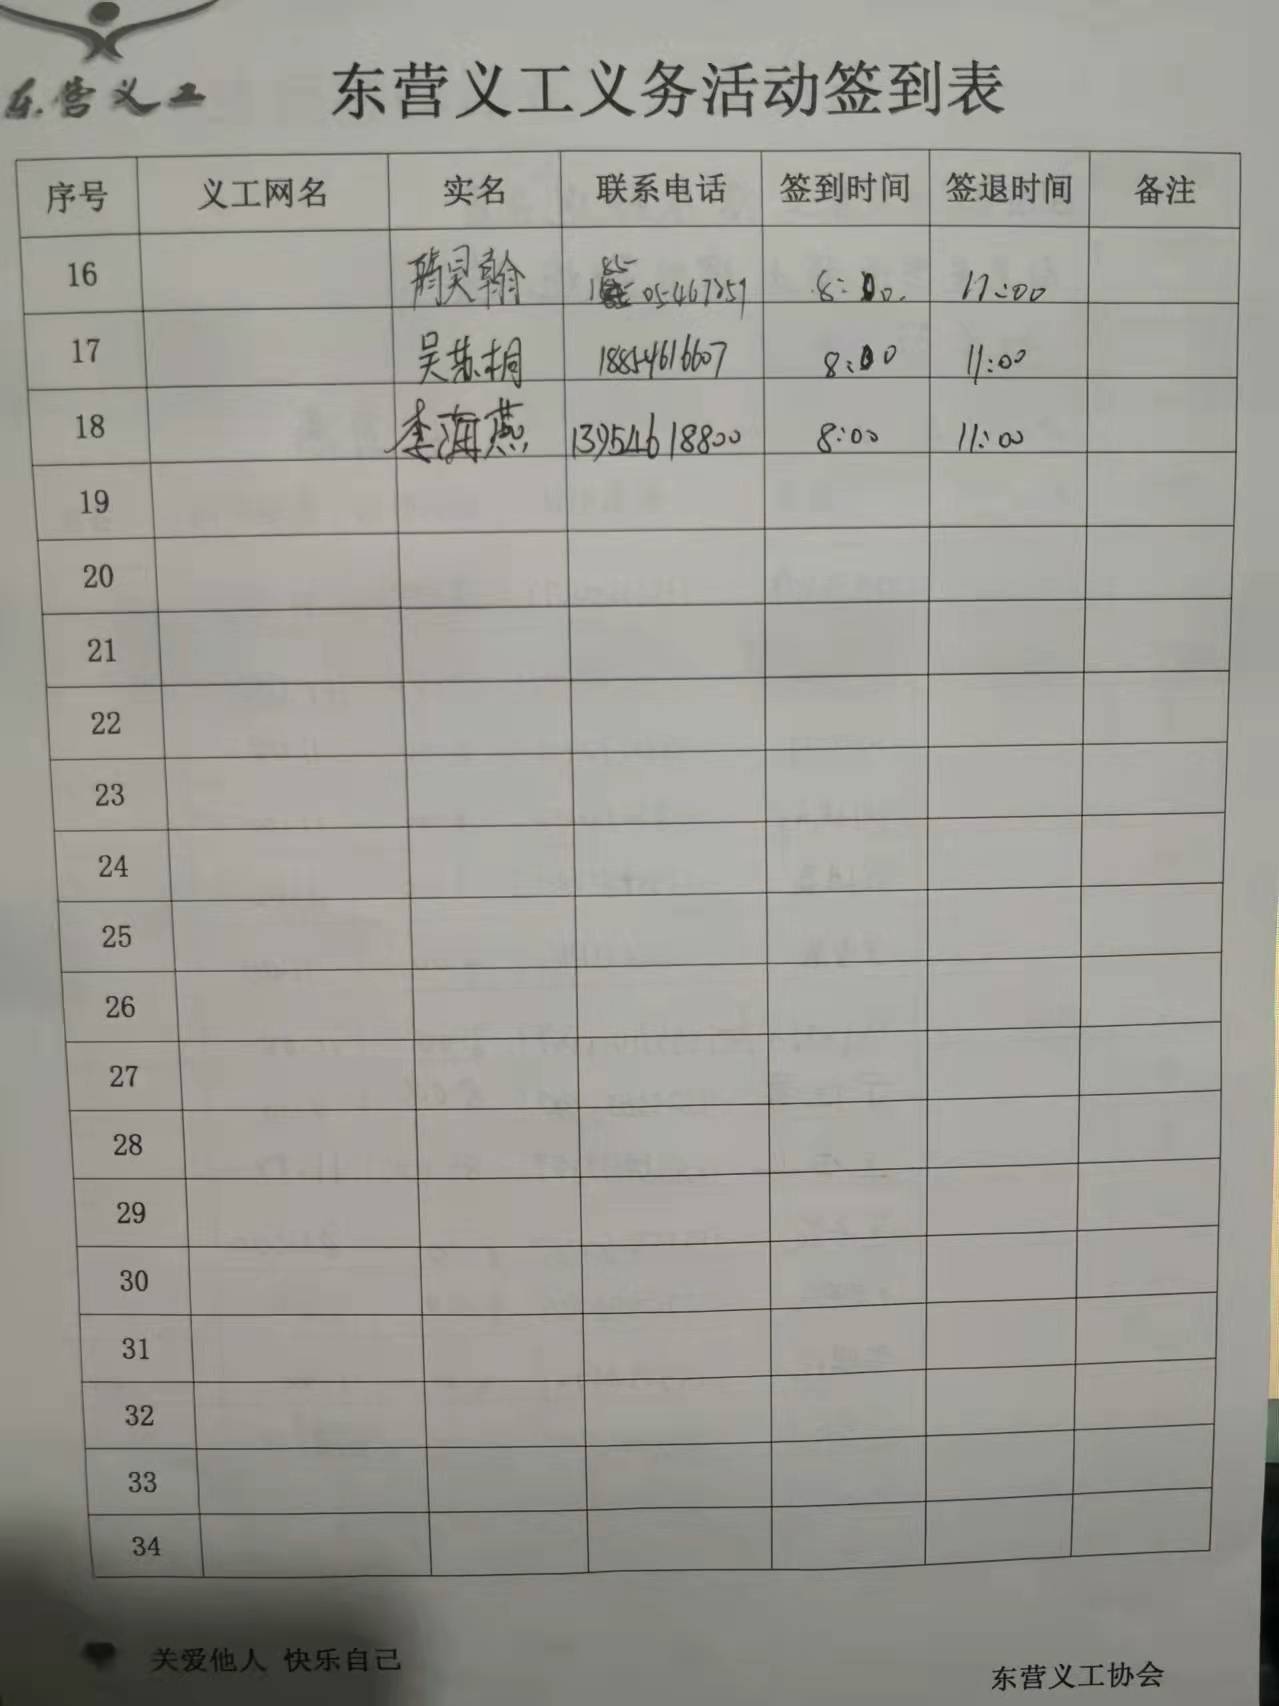 东营义工
东营义工义务活动签到表
序号 义工网名 实名 联系电话 签到时间 签退时间 备注
16 昊翰 8:00. 11:00
17 吴苏桐 18854616607 8:00 11:00
18 李海燕 13954618800 8:00 11:00
19
20
21
22
23
24
25
26
27
28
29
30
31
32
33
34
关爱他人 快乐自己
东营义工协会